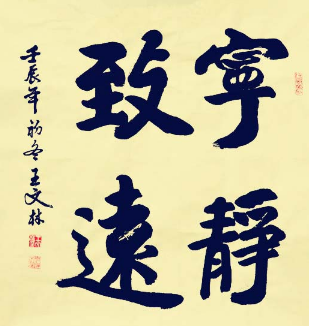 寧靜
致遠
壬辰年初冬王文林